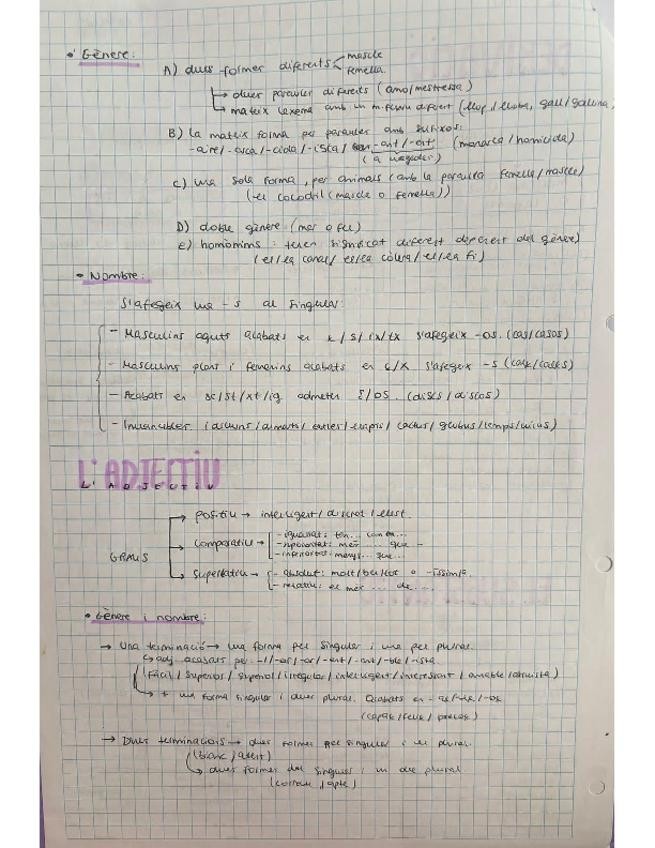 • Gènere:
A) dues formes diferents mascle
femella.
↳ dues paraules diferents (amo/mestressa)
↳ mateix lexema amb un diferent (llop/lloba, gall/gallina)
B) la mateixa forma per paraules amb sufixos:
-aire/-arca/-cida/-ista/ -ant/-ent (monarca/homicida)
(a vegades)
C) una sola forma, per animals (amb la paraula femella/mascle)
(el cocodril (mascle o femella))
D) doble gènere (mar o fel)
E) homònims: tenen significat diferent depenent del gènere)
(el/la canal/ el/la còlera/el/la fi)
• Nombre:
S'afegeix una -s al singular:
- Masculins aguts acabats en s/ix/tx s'afegeix -os. (cas/casos)
- Masculins plans i femenins acabats en s/x s'afegeix -s
- Acabats en sc/st/xt/ig admeten s/os. (discs/discos)
- Invariables (dilluns/dimarts/ / / cactus/globus/temps/ )
L'ADJECTIU
L'ADJECTIU
GRAUS
→ Positiu → intel·ligent/discret/
→ Comparatiu → - igualtat: tan... com ...
- superioritat: més ... que -
- inferioritat: menys... que...
→ Superlatiu → - absolut: molt/ o -íssim/a.
- relatiu: el més ... de ...
• Gènere i nombre:
→ Una terminació → una forma per singular i una per plural.
↳ adj. acabats per -l/-ar/-or/-ant/-ent/-ble/-ista
(Fàcil/superior/ /irregular/intel·ligent/interessant/amable/ )
↳ + una forma singular i dues plural. Acabats en -aç/-iç/-oç
(capaç/feliç/precoç)
→ Dues terminacions → dues formes per singular i plural.
(blanc/ )
↳ dues formes del singular i un de plural.